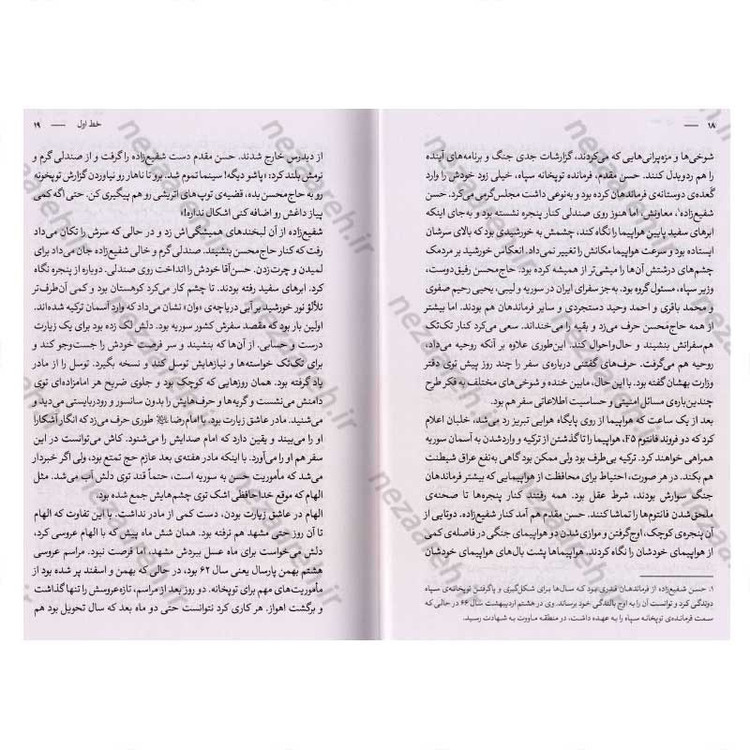 ۱۸
شوخی‌ها و مزه‌پرانی‌هایی که می‌کردند، گزارشات جدی جنگ و برنامه‌های آینده
را هم ردوبدل کنند. حسن مقدم، فرمانده توپخانه سپاه، خیلی زود خودش را وارد
گعده‌ی دوستانه‌ی فرماندهان کرده بود و به‌نوعی داشت مجلس‌گرمی می‌کرد. حسن
شفیع‌زاده۱، معاونش، اما هنوز روی صندلی کنار پنجره نشسته بود و به‌جای اینکه
ابرهای سفید پایین هواپیما را نگاه کند، چشمش به خورشیدی بود که بالای سرشان
ایستاده بود و سرعت هواپیما مکانش را تغییر نمی‌داد. انعکاس خورشید بر مردمک
چشم‌های درشتش آن‌ها را میشی‌تر از همیشه کرده بود. حاج‌محسن رفیق‌دوست،
وزیر سپاه، مسئول گروه بود. به‌جز سفرای ایران در سوریه و لیبی، یحیی رحیم صفوی
و محمد باقری و احمد وحید دستجردی و سایر فرماندهان هم بودند. اما بیشتر
از همه حاج‌محسن حرف می‌زد و بقیه را می‌خنداند. سعی می‌کرد کنار تک‌تک
هم‌سفرانش بنشیند و حال‌واحوال کند. این‌طوری علاوه بر آنکه روحیه می‌داد،
روحیه هم می‌گرفت. حرف‌های گفتنی درباره‌ی سفر را چند روز پیش توی دفتر
وزارت بهشان گفته بود. با این حال، مابین خنده و شوخی‌های مختلف به فکر طرح
چندین‌باره‌ی مسائل امنیتی و حساسیت اطلاعاتی سفر هم بود.
بعد از یک ساعت که هواپیما از روی پایگاه هوایی تبریز رد می‌شد، خلبان اعلام
کرد که دو فروند فانتوم F5، هواپیما را تا گذشتن از ترکیه و واردشدن به آسمان سوریه
همراهی خواهند کرد. ترکیه بی‌طرف بود ولی ممکن بود گاهی به‌نفع عراق شیطنت
هم بکند. در هر صورت، احتیاط برای محافظت از هواپیمایی که بیشتر فرماندهان
جنگ سوارش بودند، شرط عقل بود. همه رفتند کنار پنجره‌ها تا صحنه‌ی
ملحق‌شدن فانتوم‌ها را تماشا کنند. حسن مقدم هم آمد کنار شفیع‌زاده. دوتایی از
آن پنجره‌ی کوچک، اوج‌گرفتن و موازی‌شدن دو هواپیمای جنگی در فاصله‌ی کمی
از هواپیمای خودشان را نگاه کردند. هواپیماها پشت بال‌های هواپیمای خودشان
۱. حسن شفیع‌زاده از فرماندهان قدری بود که سال‌ها برای شکل‌گیری و پاگرفتن توپخانه‌ی سپاه
دوندگی کرد و توانست آن را به اوج بالندگی خود برساند. وی در هشتم اردیبهشت سال ۶۶ در حالی که
سمت فرمانده‌ی توپخانه سپاه را به عهده داشت، در منطقه ماووت به شهادت رسید.
خط اول — ۱۹
از دیدرس خارج شدند. حسن مقدم دست شفیع‌زاده را گرفت و از صندلی گرم و
نرمش بلند کرد: «پاشو دیگه! سینما تموم شد. برو تا ناهار رو نیاوردن گزارش توپخونه
رو به حاج‌محسن بده، قضیه‌ی توپ های اتریشی رو هم پیگیری کن. حتی اگه کمی
پیاز داغش رو اضافه کنی اشکال نداره!»
شفیع‌زاده از آن لبخندهای همیشگی‌اش زد و در حالی که سرش را تکان می‌داد
رفت که کنار حاج‌محسن بنشیند. صندلی گرم و خالی شفیع‌زاده جان می‌داد برای
لمیدن و چرت‌زدن. حسن‌آقا خودش را انداخت روی صندلی. دوباره از پنجره نگاه
کرد، ابرهای سفید رفته بودند. تا چشم کار می‌کرد کوهستان بود و کمی آن‌طرف‌تر
تلألؤ نور خورشید بر آبی دریاچه‌ی «وان» نشان می‌داد که وارد آسمان ترکیه شده‌اند.
اولین بار بود که مقصد سفرش کشور سوریه بود. دلش لک زده بود برای یک زیارت
درست و حسابی. از آن‌ها که بنشیند و سر فرصت خودش را جست‌وجو کند و
برای تک‌تک خواسته‌ها و نیازهایش توسل کند و نسخه بگیرد. توسل را از مادر
یاد گرفته بود. همان روزهایی که کوچک بود و جلوی ضریح هر امامزاده‌ای توی
دامنش می‌نشست و گریه‌ها و حرف‌هایش را بدون سانسور و رودربایستی می‌دید و
می‌شنید. مادر عاشق زیارت بود. با امام رضا طوری حرف می‌زد که انگار آشکارا
او را می‌بیند و یقین دارد که امام صدایش را می‌شنود. کاش می‌توانست در این
سفر هم او را می‌آورد. با اینکه مادر هفته‌ی بعد عازم حج تمتع بود، ولی اگر خبردار
می‌شد که مأموریت حسن به سوریه است، حتماً قند توی دلش آب می‌شد. مثل
الهام که موقع خداحافظی اشک توی چشم‌هایش جمع شده بود.
الهام در عاشق زیارت بودن، دست کمی از مادر نداشت. با این تفاوت که الهام
تا آن روز حتی مشهد هم نرفته بود. همان شش ماه پیش که با الهام عروسی کرد،
دلش می‌خواست برای ماه عسل ببردش مشهد، اما فرصت نبود. مراسم عروسی
هشتم بهمن پارسال یعنی سال ۶۲ بود، در حالی که بهمن و اسفند پر شده بود از
مأموریت‌های مهم برای توپخانه. دو روز بعد از مراسم، تازه‌عروسش را تنها گذاشت
و برگشت اهواز. هر کاری کرد نتوانست حتی دو ماه بعد که سال تحویل بود هم
nezaareh.ir